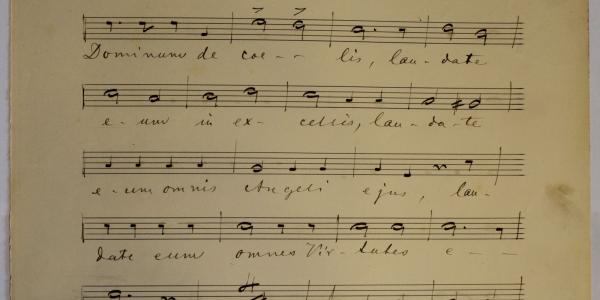 Dominum de coe - - lis, lau - date
e - um in ex - celsis, lau - da - te
e - um omnis Angeli ejus, lau -
date eum omnes Vir - tutes e - -